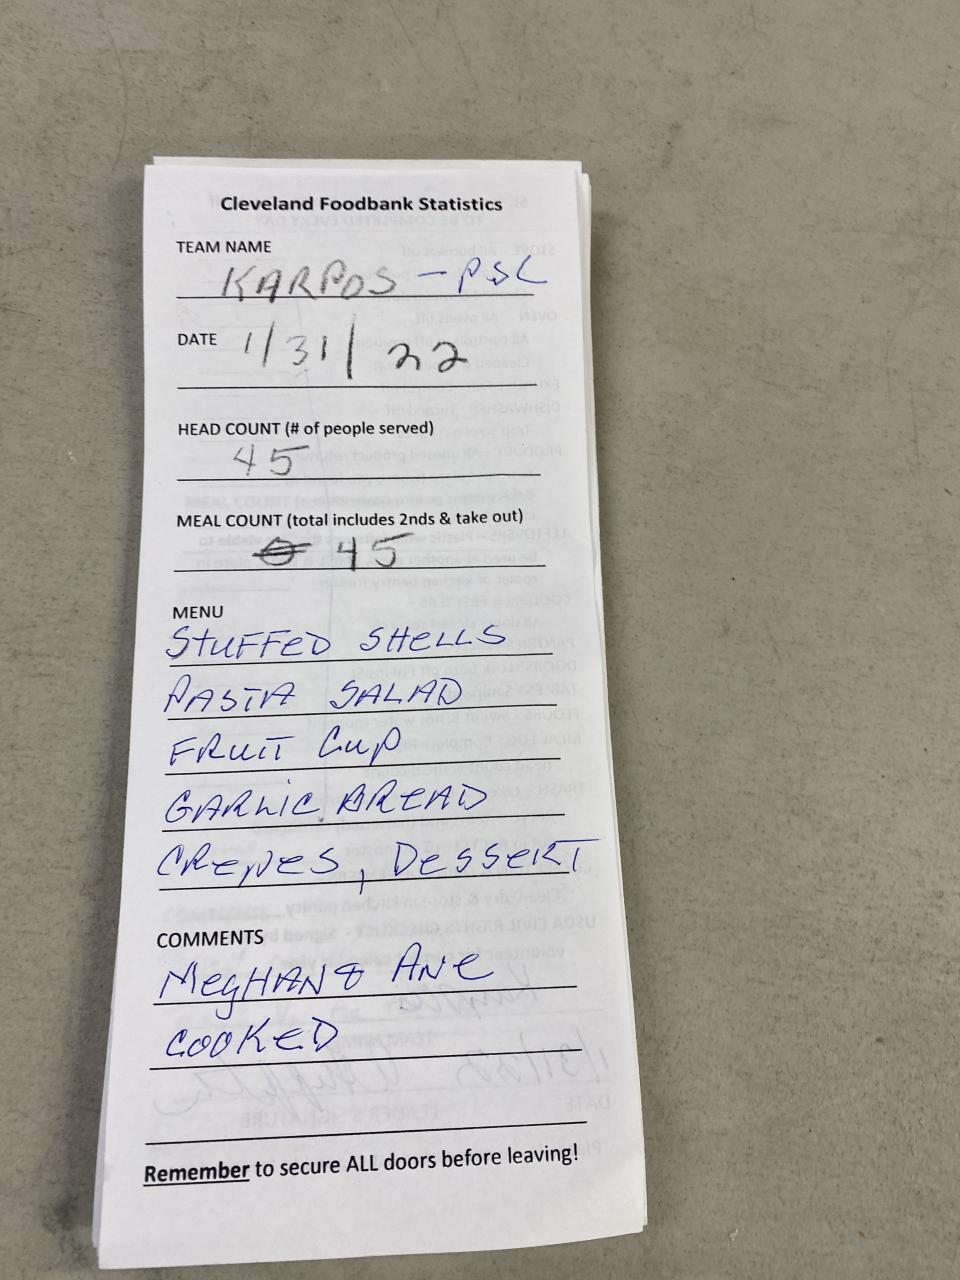 Cleveland Foodbank Statistics
TEAM NAME
KARPOS - PSL
DATE 1/31/22
HEAD COUNT (# of people served)
45
MEAL COUNT (total includes 2nds & take out)
45
MENU
STUFFED SHELLS
PASTA SALAD
FRUIT CUP
GARLIC BREAD
CREPES, DESSERT
COMMENTS
MEGHAN & ANE
COOKED
Remember to secure ALL doors before leaving!